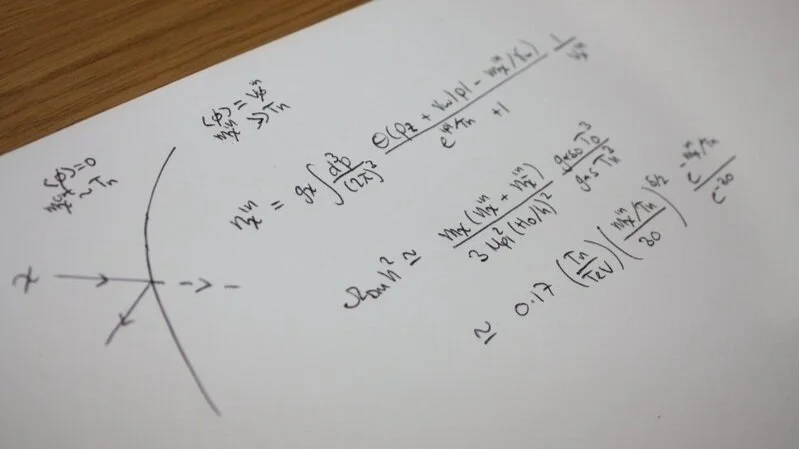 ⟨φ⟩ = 0
⟨φ⟩ = v_φ^in
≫ T_n
χ
n_χ^in = g_χ ∫ d³p/(2π)³ Θ(p_z + v_w|p| - m_χ^in/γ_w) / (e^{|p|/T_n} + 1)
Ω_DM h² ≃ m_χ(n_χ^in + n_χ̄^in) / (3 M_pl² (H_0/h)²) · g_*S0 T_0³ / (g_*S T_n³)
≃ 0.17 (T_n/TeV) ((m_χ^in/T_n)/30)^{5/2} e^{-m_χ^in/T_n} / e^{-30}